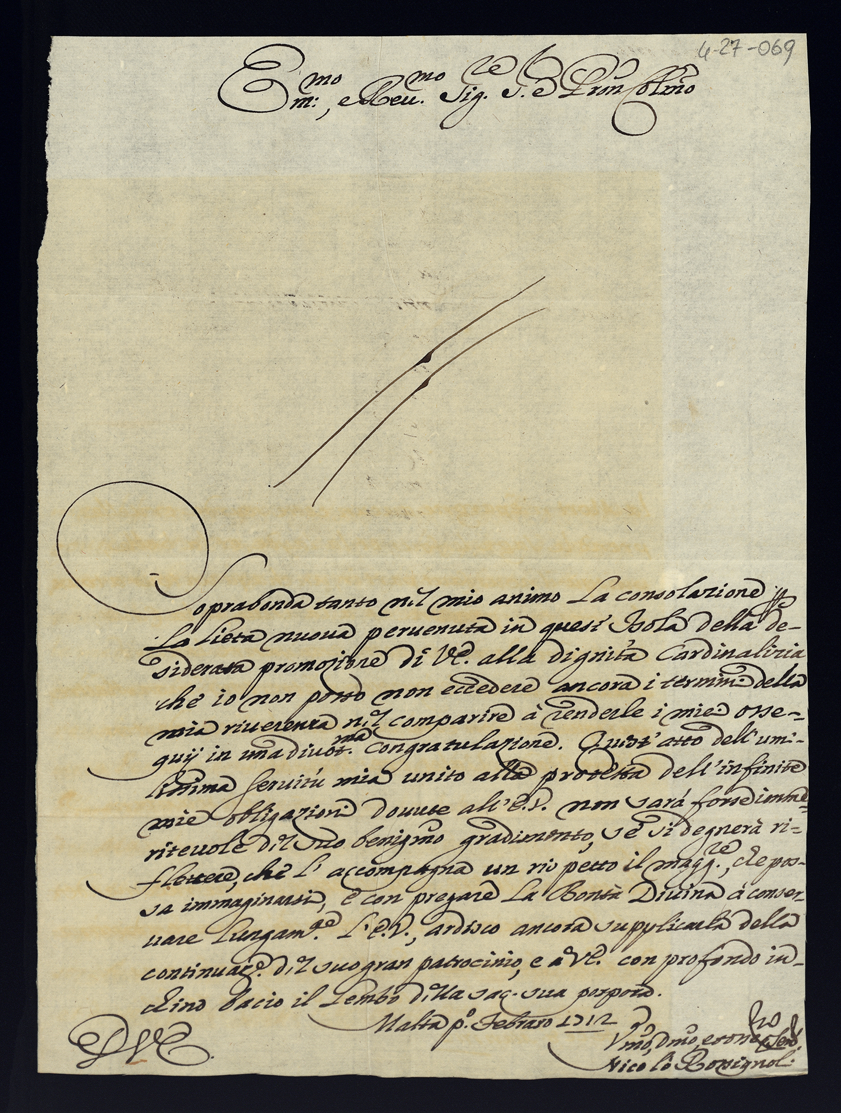 4-27-069
Em:mo, e Reu.mo Sig.re S. e Pron Colmo
Soprabonda tanto nel mio animo La consolazione p
La lieta nuova peruenuta in quest' Isola della de=
siderata promozione di VE. alla dignità Cardinalizia
che io non posso non eccedere ancora i termini della
mia riuerenza nel comparire à renderle i miei osse=
quij in una diuot.ma congratulazione. Quest' atto dell' umi=
lissima seruitù mia unito alla protesta dell' infinite
mie obligazioni douute all' E.V. non sarà forse imme=
riteuole del suo benigno gradimento, se si degnerà ri=
flettere, che l' accompagna un rispetto il magg.re, che pos=
sa immaginarsi, e con pregare La Bontà Diuina à conser=
uare lungam.te L' E.V., ardisco ancora supplicarla della
continuaz.e del suo gran patrocinio, e a VE. con profondo in=
chino bacio il Lembo della sag. sua porpora.
Malta p.o Febraro 1712
DVE.
Vmo, Dmo, e
Nicolò Rosignol